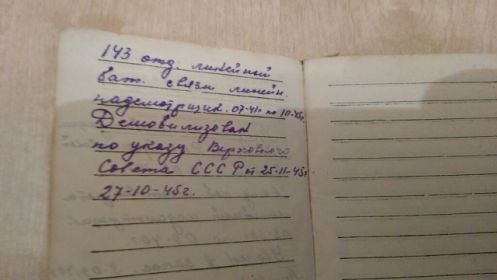 143 отд. линейной
бат. связи линейн.
надсмотрщик. 07-41г по 10-45г.
Демобилизован
по указу Верховного
Совета СССР от 25-11-45г.
27-10-45г.